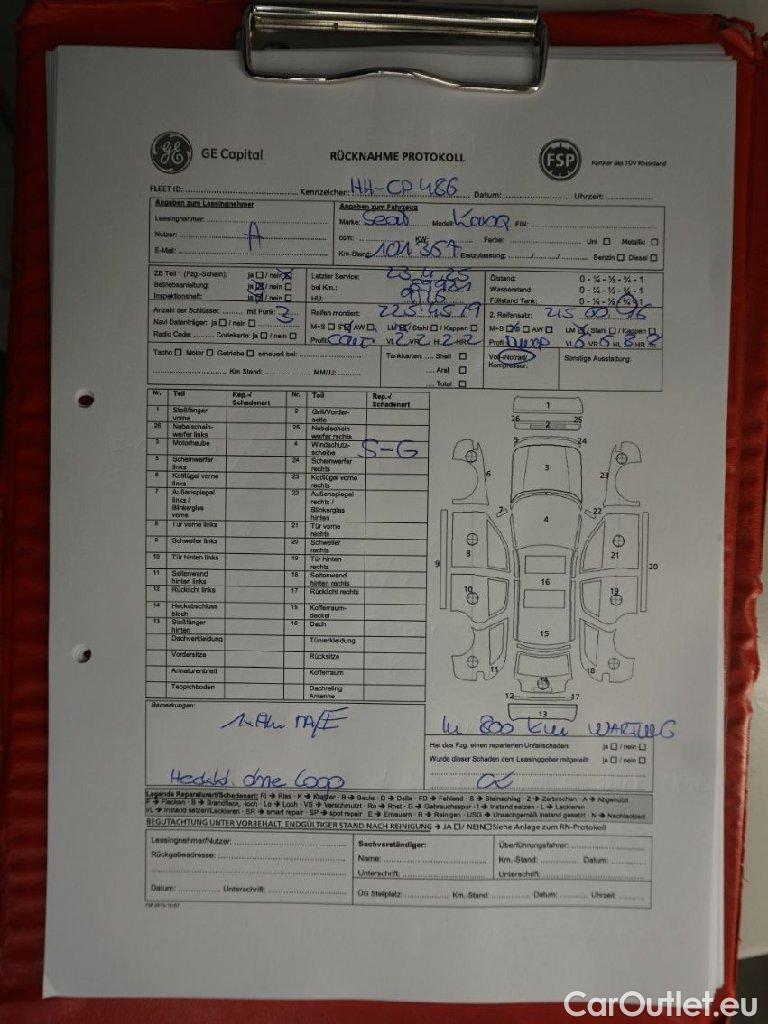 GE Capital RÜCKNAHME PROTOKOLL FSP Partner des TÜV Rheinland
FLEET ID: Kennzeichen: HH-CP 486 Datum: Uhrzeit:
Angaben zum Leasingnehmer Angaben zum Fahrzeug
Leasingnehmer: Marke: Seat Modell: FIN:
Nutzer: A ccm: KW: Farbe: Uni Metallic
E-Mail: Km-Stand: 101 367 Erstzulassung: Benzin Diesel
ZB Teil I (Fzg.-Schein): ja / nein Letzter Service: 23.4.25 Ölstand: 0 - ¼ - ½ - ¾ - 1
Betriebsanleitung: ja / nein bei Km.: Wasserstand: 0 - ¼ - ½ - ¾ - 1
Inspektionsheft: ja / nein HU: Füllstand Tank: 0 - ¼ - ½ - ¾ - 1
Anzahl der Schlüssel: mit Funk: 3 Reifen montiert: 225.45.19 2. Reifensatz:
Navi Datenträger: ja / nein M+S S AW LM / Stahl / Kappen M+S S AW LM / Stahl / Kappen
Radio Code: Codekarte: ja / nein Profil VL 2 VR 2 HL 2 HR 2 Profil
Tacho Motor Getriebe erneuert bei: Tankkarten Shell Voll-/Notrad/ Sonstige Ausstattung:
Aral Kompressor:
Km Stand: MM/JJ: Total
Nr. Teil Rep.-/ Schadenart Nr. Teil Rep.-/ Schadenart
1 Stoßfänger vorne 2 Grill/Vorderseite
26 Nebelscheinwerfer links 25 Nebelscheinwerfer rechts
3 Motorhaube 4 Windschutzscheibe S-G
5 Scheinwerfer links 24 Scheinwerfer rechts
6 Kotflügel vorne links 23 Kotflügel vorne rechts
7 Außenspiegel links / Blinkerglas vorne 22 Außenspiegel rechts / Blinkerglas hinten
8 Tür vorne links 21 Tür vorne rechts
9 Schweller links 20 Schweller rechts
10 Tür hinten links 19 Tür hinten rechts
11 Seitenwand hinter links 18 Seitenwand hinter rechts
12 Rücklicht links 17 Rücklicht rechts
14 Heckabschlussblech 15 Kofferraumdeckel
13 Stoßfänger hinten 16 Dach
Dachverkleidung Türverkleidung
Vordersitze Rücksitze
Armaturenbrett Kofferraum
Teppichboden Dachreling Antenne
Bemerkungen:
In 800 km WARTUNG
Hat das Fzg. einen reparierten Unfallschaden: ja / nein
Wurde dieser Schaden dem Leasinggeber mitgeteilt ja / nein
Heckkl. ohne Logo
Legende Reparaturart/Schadenart: Ri → Riss - K → Kratzer - B → Beule - D → Delle - FD → Fehlend - S → Steinschlag - Z → Zerbrochen - A → Abgenutzt
F → Flecken - B → Brandfleck, -loch - Lo → Loch - VS → Verschmutzt - Ro → Rost - G → Gebrauchsspur - I → Instand setzen - L → Lackieren
I/L → Instand setzen/Lackieren - SR → smart repair - SP → spot repair - E → Erneuern - R → Reinigen - USG → Unsachgemäß instand gesetzt - N → Nachlackiert
BEGUTACHTUNG UNTER VORBEHALT ENDGÜLTIGER STAND NACH REINIGUNG → JA / NEIN Siehe Anlage zum RN-Protokoll
Leasingnehmer/Nutzer: Sachverständiger: Überführungsfahrer:
Rückgabeadresse: Name: Km.-Stand: Datum:
Unterschrift: Unterschrift:
Datum: Unterschrift: ÜG Stellplatz: Km.-Stand: Datum: Uhrzeit:
CarOutlet.eu